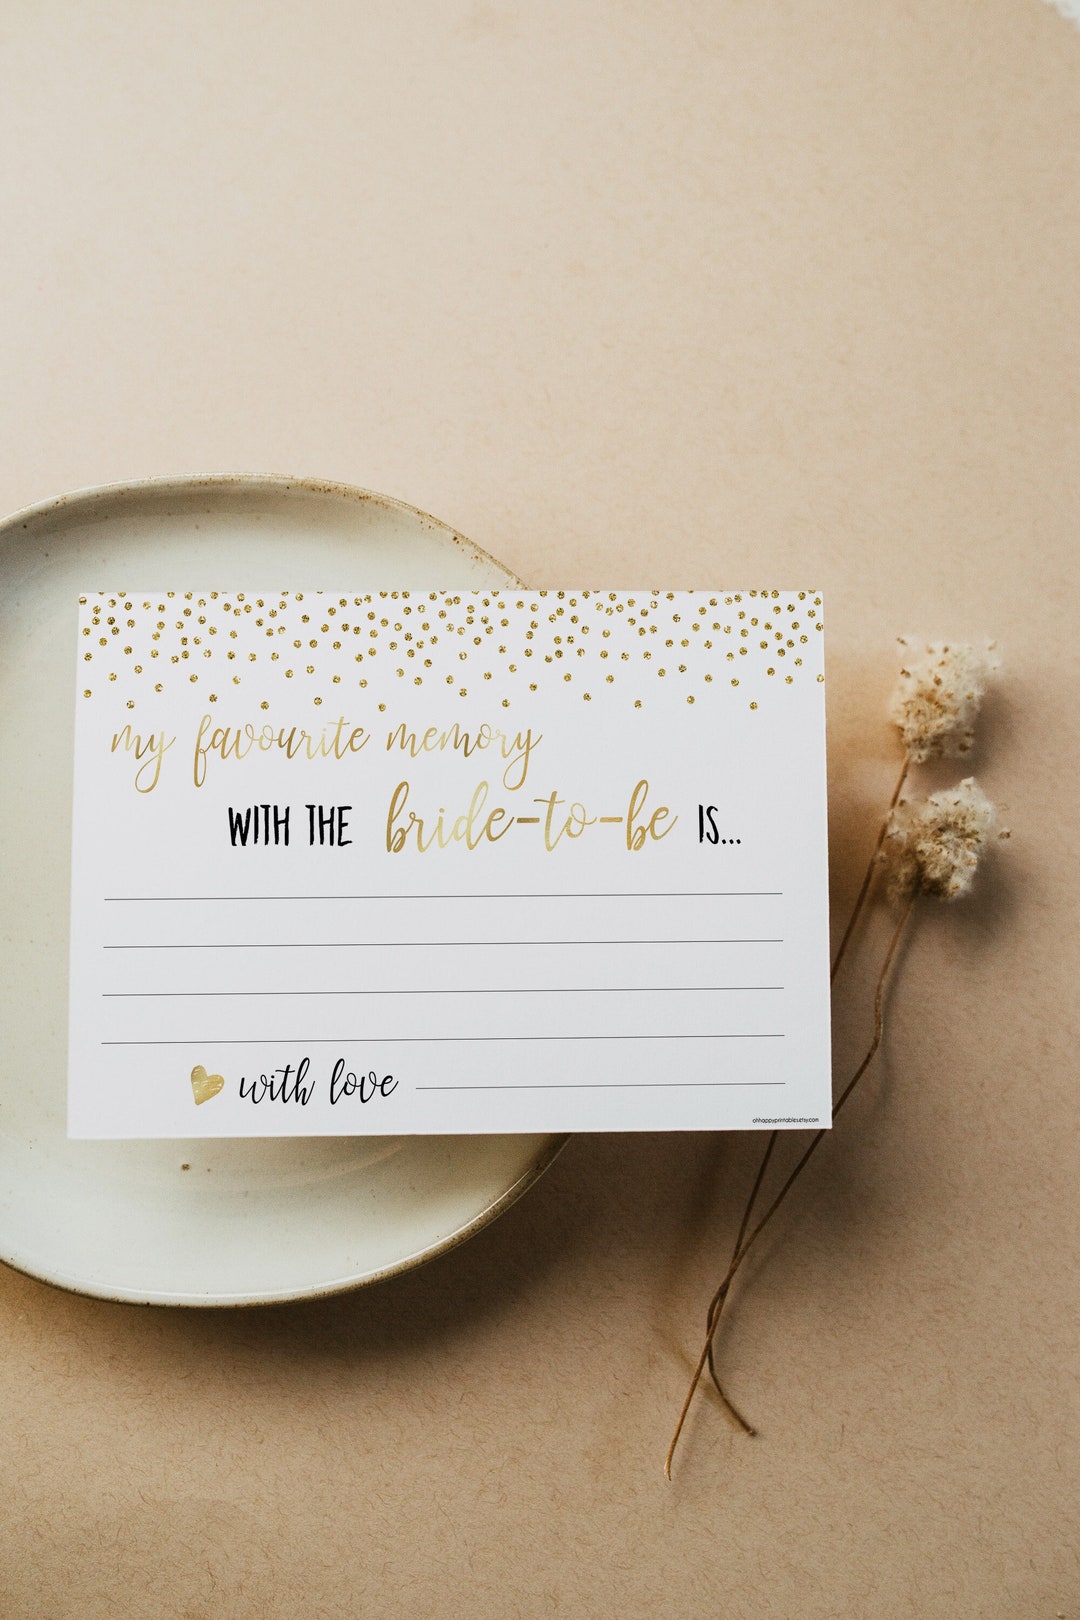 my favourite memory
WITH THE bride-to-be IS...
with love
ohhappyprintables.etsy.com